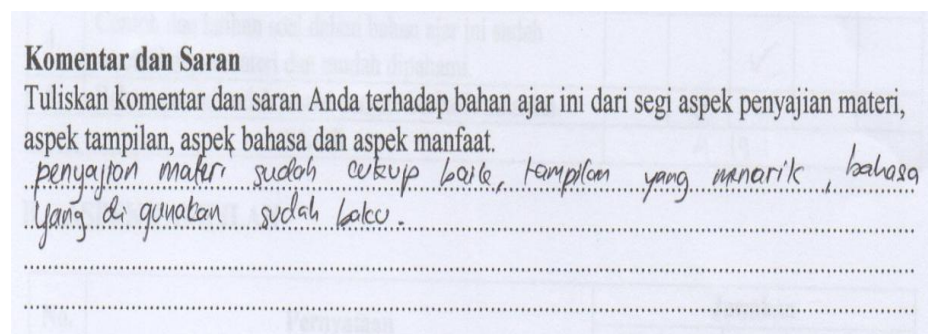 Komentar dan Saran
Tuliskan komentar dan saran Anda terhadap bahan ajar ini dari segi aspek penyajian materi,
aspek tampilan, aspek bahasa dan aspek manfaat.
penyajian materi sudah cukup baik, tampilan yang menarik, bahasa
yang di gunakan sudah baku.
No.
Pernyataan